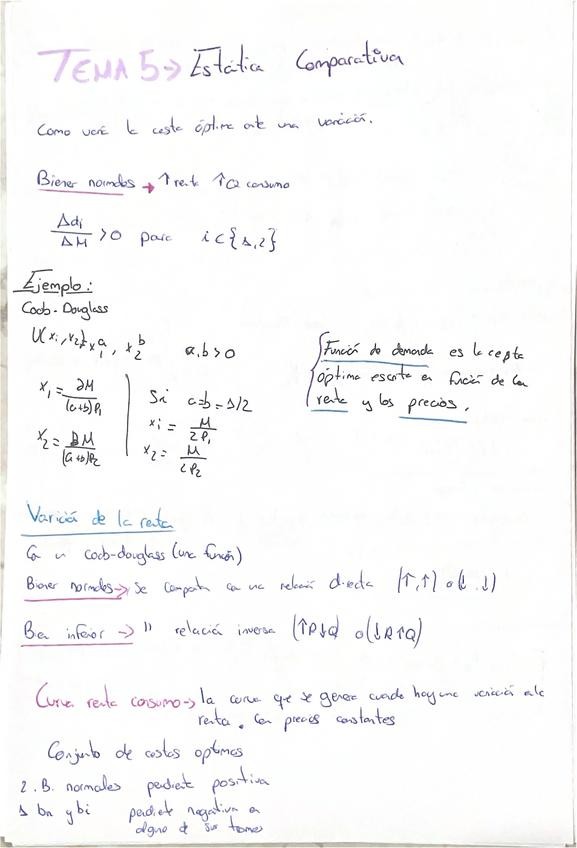 TEMA 5 → Estática Comparativa
Como varía la cesta óptima ante una variación.
Bienes normales → ↑ renta ↑Q consumo
Δdi/ΔM > 0 para i ∈ {1,2}
Ejemplo:
Coob-Douglass
U(x₁,x₂)= x₁ᵃ, x₂ᵇ a,b > 0
x₁ = aM/(a+b)P₁
x₂ = bM/(a+b)P₂
Si a=b=1/2
x₁ = M/2P₁
x₂ = M/2P₂
Función de demanda es la cesta
óptima escrita en función de la
renta y los precios.
Variación de la renta
Con un Coob-douglass (una función)
Bienes normales → Se comporta con una relación directa (↑,↑) o (↓,↓)
Bien inferior → " relación inversa (↑R↓Q) o (↓R↑Q)
Curva renta consumo → la curva que se genera cuando hay una variación de la
renta. Con precios constantes
Conjunto de cestas optimas
2. B. normales pendiente positiva
1 bn y bi pendiente negativa en
alguno de sus tramos